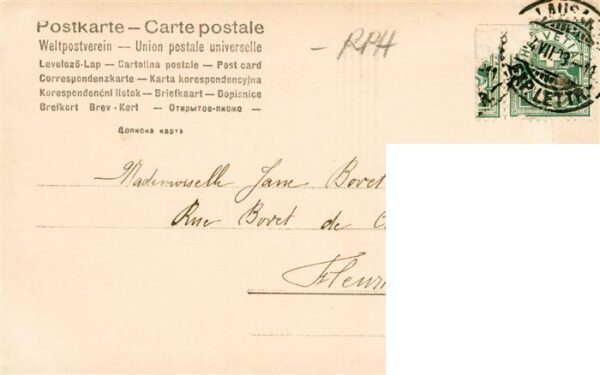 Postkarte — Carte postale
Weltpostverein — Union postale universelle
Levelező-Lap — Cartolina postale — Post card
Correspondenzkarte — Karta korespondencyjna
Korespondenční listek — Briefkaart — Dopisnice
Brefkort Brev-Kort — Открытое-письмо —
Дописна карта
RPH
LAUSA
HELVETIA
EXP. LETTR
Mademoiselle Jane Bovet
Rue Bovet de C
Fleuri